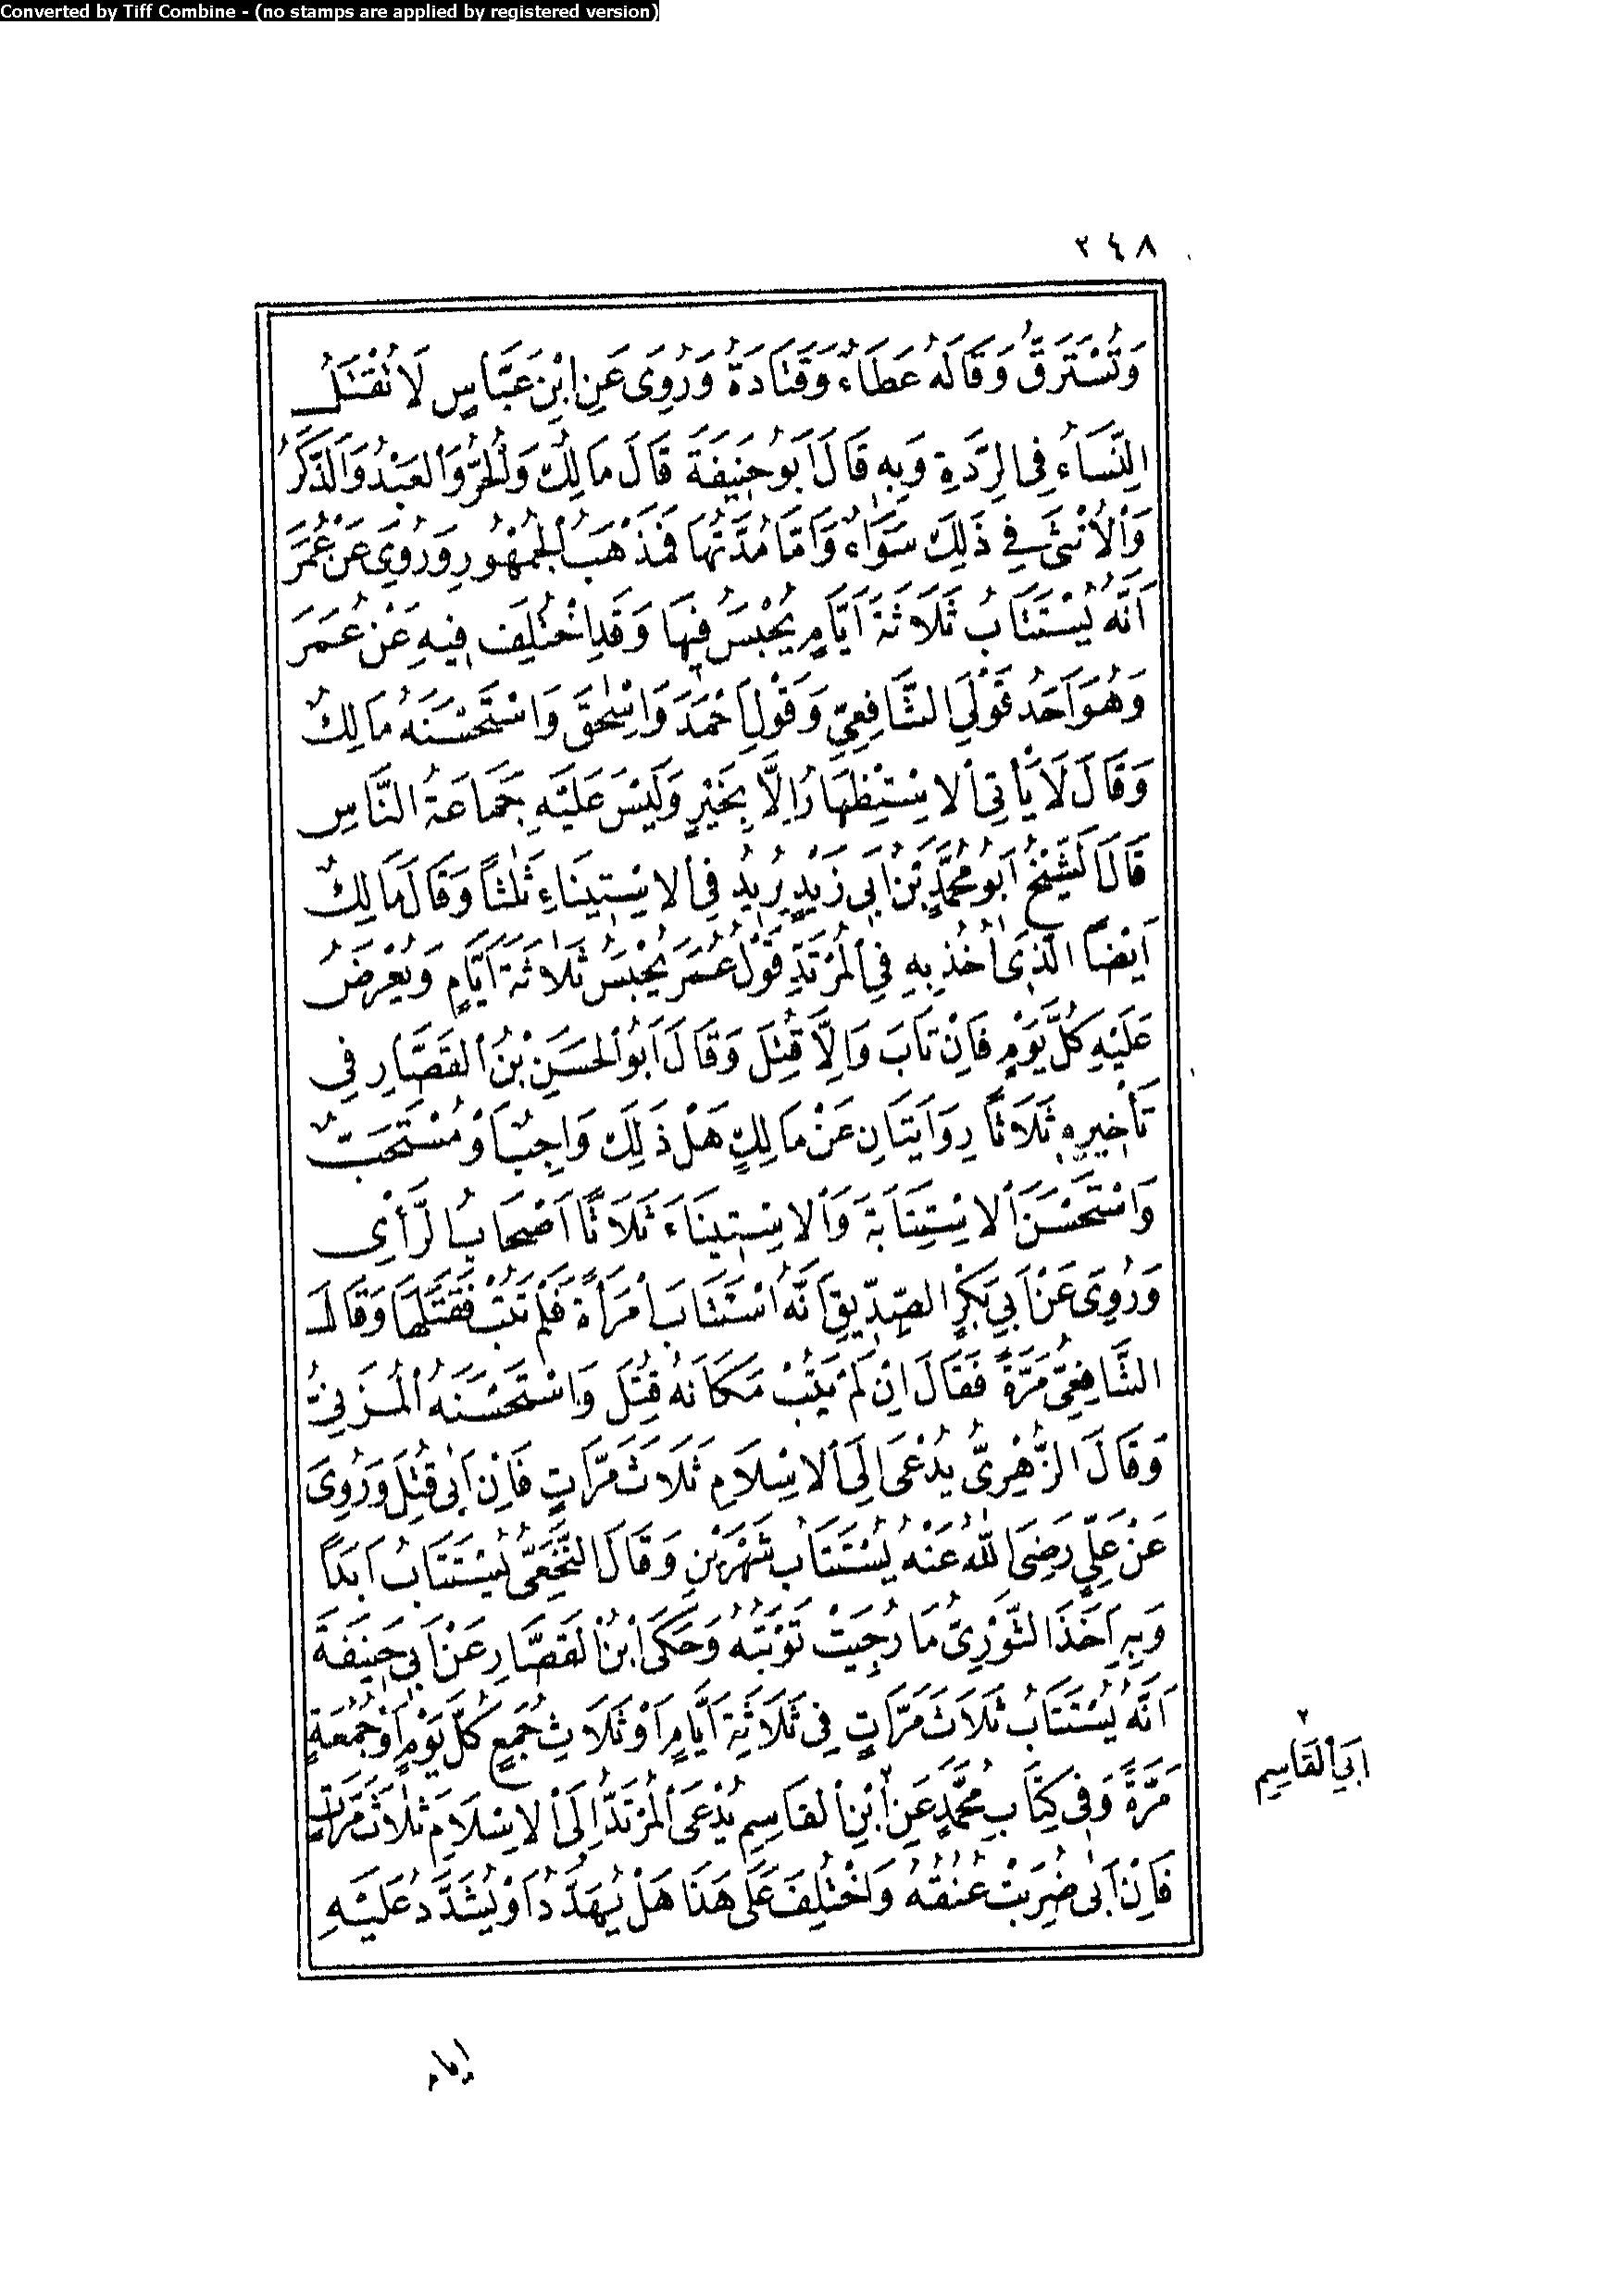 Converted by Tiff Combine - (no stamps are applied by registered version)
٢٤٨
وَتُسْتَرَقُّ وَقَالَهُ عَطَاءٌ وَقَتَادَةُ وَرُوِىَ عَنِ ابْنِ عَبَّاسٍ لَا تُقْتَلُ
النِّسَاءُ فِى الرِّدَّةِ وَبِهِ قَالَ أَبُو حَنِيفَةَ قَالَ مَالِكٌ وَالْحُرُّ وَالْعَبْدُ وَالذَّكَرُ
وَالْأُنْثَى فِى ذَلِكَ سَوَاءٌ وَأَمَّا مُدَّتُهَا فَمَذْهَبُ الْجُمْهُورِ وَرُوِىَ عَنْ عُمَرَ
أَنَّهُ يُسْتَتَابُ ثَلَاثَةَ أَيَّامٍ يُحْبَسُ فِيهَا وَقَدِ اخْتُلِفَ فِيهِ عَنْ عُمَرَ
وَهُوَ أَحَدُ قَوْلَىِ الشَّافِعِىِّ وَقَوْلِ أَحْمَدَ وَإِسْحٰقَ وَاسْتَحْسَنَهُ مَالِكٌ
وَقَالَ لَا يَأْتِى الْاِسْتِظْهَارُ إِلَّا بِخَيْرٍ وَلَيْسَ عَلَيْهِ جَمَاعَةُ النَّاسِ
قَالَ الشَّيْخُ أَبُو مُحَمَّدِ بْنُ أَبِى زَيْدٍ يُرِيدُ فِى الْاِسْتِينَاءِ ثَلٰثاً وَقَالَ مَالِكٌ
أَيْضاً الَّذِى آخُذُ بِهِ فِى الْمُرْتَدِّ قَوْلُ عُمَرَ يُحْبَسُ ثَلَاثَةَ أَيَّامٍ وَيُعْرَضُ
عَلَيْهِ كُلَّ يَوْمٍ فَإِنْ تَابَ وَإِلَّا قُتِلَ وَقَالَ أَبُو الْحَسَنِ بْنُ الْقَصَّارِ فِى
تَأْخِيرِهِ ثَلَاثاً رِوَايَتَانِ عَنْ مَالِكٍ هَلْ ذَلِكَ وَاجِبٌ أَوْ مُسْتَحَبٌّ
وَاسْتَحْسَنَ الْاِسْتِتَابَةَ وَالْاِسْتِينَاءَ ثَلَاثًا أَصْحَابُ الرَّأْىِ
وَرُوِىَ عَنْ أَبِى بَكْرٍ الصِّدِّيقِ أَنَّهُ اسْتَتَابَ امْرَأَةً فَلَمْ تَتُبْ فَقَتَلَهَا وَقَالَ
الشَّافِعِىُّ مَرَّةً فَقَالَ إِنْ لَمْ يَتُبْ مَكَانَهُ قُتِلَ وَاسْتَحْسَنَهُ الْمُزَنِىُّ
وَقَالَ الزُّهْرِىُّ يُدْعَى إِلَى الْاِسْلَامِ ثَلَاثَ مَرَّاتٍ فَإِنْ أَبٰى قُتِلَ وَرُوِىَ
عَنْ عَلِىٍّ رَضِىَ اللّٰهُ عَنْهُ يُسْتَتَابُ شَهْرَيْنِ وَقَالَ النَّخَعِىُّ يُسْتَتَابُ أَبَداً
وَبِهِ أَخَذَ الثَّوْرِىُّ مَا رُجِيَتْ تَوْبَتُهُ وَحَكَى ابْنُ الْقَصَّارِ عَنْ أَبِى حَنِيفَةَ
أَنَّهُ يُسْتَتَابُ ثَلَاثَ مَرَّاتٍ فِى ثَلَاثَةِ أَيَّامٍ أَوْ ثَلَاثِ جُمَعٍ كُلَّ يَوْمٍ أَوْ جُمُعَةٍ
مَرَّةً وَفِى كِتَابِ مُحَمَّدٍ عَنِ ٢ ابْنِ الْقَاسِمِ يُدْعَى الْمُرْتَدُّ إِلَى الْاِسْلَامِ ثَلَاثَ مَرَّاتٍ
فَإِنْ أَبٰى ضُرِبَتْ عُنُقُهُ وَاخْتُلِفَ عَلَى هَذَا هَلْ يُهَدَّدُ أَوْ يُشَدَّدُ عَلَيْهِ
٢
أَبِى الْقَاسِمِ